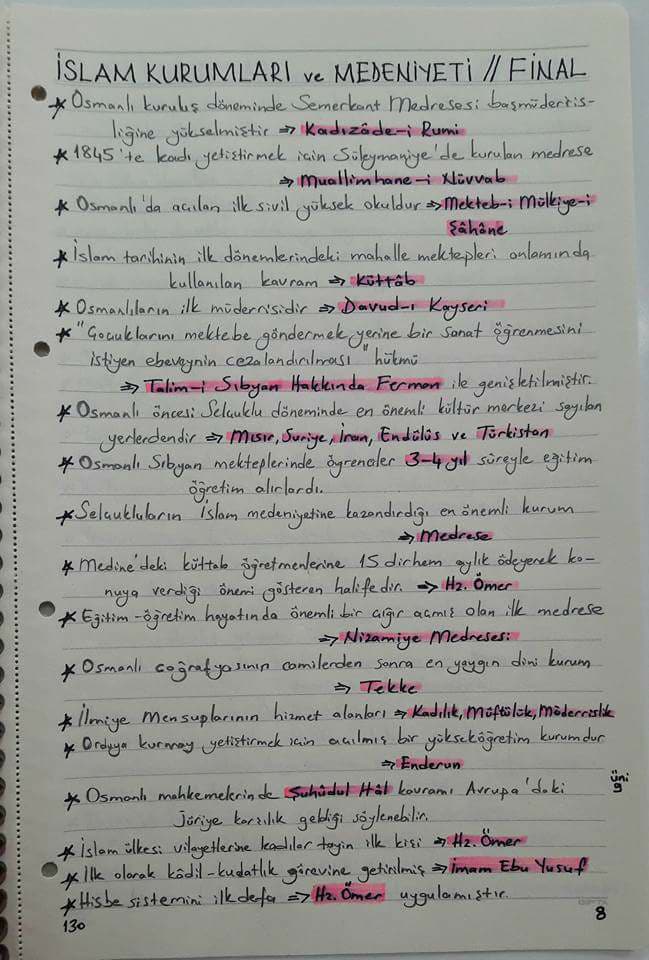 İSLAM KURUMLARI ve MEDENİYETİ // FİNAL
★ Osmanlı kuruluş döneminde Semerkant Medresesi başmüderris-
liğine yükselmiştir ⇒ Kadızâde-i Rumi
★ 1845'te kadı yetiştirmek için Süleymaniye'de kurulan medrese
⇒ Muallimhane-i Nüvvab
★ Osmanlı'da açılan ilk sivil yüksek okuldur ⇒ Mekteb-i Mülkiye-i
Şâhâne
★ İslam tarihinin ilk dönemlerindeki mahalle mektepleri anlamında
kullanılan kavram ⇒ Küttâb
★ Osmanlıların ilk müderrisidir ⇒ Davud-ı Kayseri
★ "Çocuklarını mektebe göndermek yerine bir sanat öğrenmesini
istiyen ebeveynin cezalandırılması" hükmü
⇒ Talim-i Sıbyan Hakkında Ferman ile genişletilmiştir.
★ Osmanlı öncesi Selçuklu döneminde en önemli kültür merkezi sayılan
yerlerdendir ⇒ Mısır, Suriye, İran, Endülüs ve Türkistan
★ Osmanlı Sıbyan mekteplerinde öğrenciler 3-4 yıl süreyle eğitim
öğretim alırlardı.
★ Selçukluların İslam medeniyetine kazandırdığı en önemli kurum
⇒ Medrese
★ Medine'deki küttab öğretmenlerine 15 dirhem aylık ödeyerek ko-
nuya verdiği önemi gösteren halifedir. ⇒ Hz. Ömer
★ Eğitim-öğretim hayatında önemli bir çığır açmış olan ilk medrese
⇒ Nizamiye Medresesi
★ Osmanlı coğrafyasının camilerden sonra en yaygın dini kurum
⇒ Tekke
★ İlmiye mensuplarının hizmet alanları ⇒ Kadılık, Müftülük, Müderrislik
★ Orduya kurmay yetiştirmek için açılmış bir yükseköğretim kurumdur
⇒ Enderun
üni
9
★ Osmanlı mahkemelerinde Şuhûdul Hâl kavramı Avrupa'daki
Jüriye karşılık geldiği söylenebilir.
★ İslam ülkesi vilayetlerine kadılar tayin ilk kişi ⇒ Hz. Ömer
★ İlk olarak kâdil-kudatlık görevine getirilmiş ⇒ İmam Ebu Yusuf
★ Hisbe sistemini ilk defa ⇒ Hz. Ömer uygulamıştır.
130
8